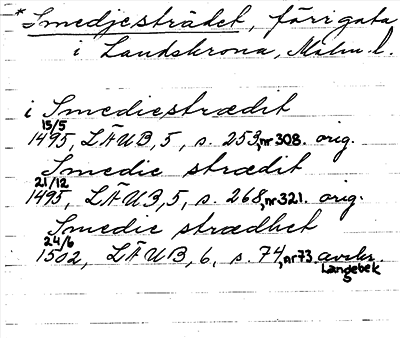 *Smedjesträdet, förr gata
i Landskrona, Malm. l.
i Smediestrædit
15/5
1495, LÄUB, 5, s. 253, nr 308. orig.
Smedie strædit
21/12
1495, LÄUB, 5, s. 268, nr 321. orig.
Smedie strædhet
24/6
1502, LÄUB, 6, s. 74, nr 73. avskr.
Langebek